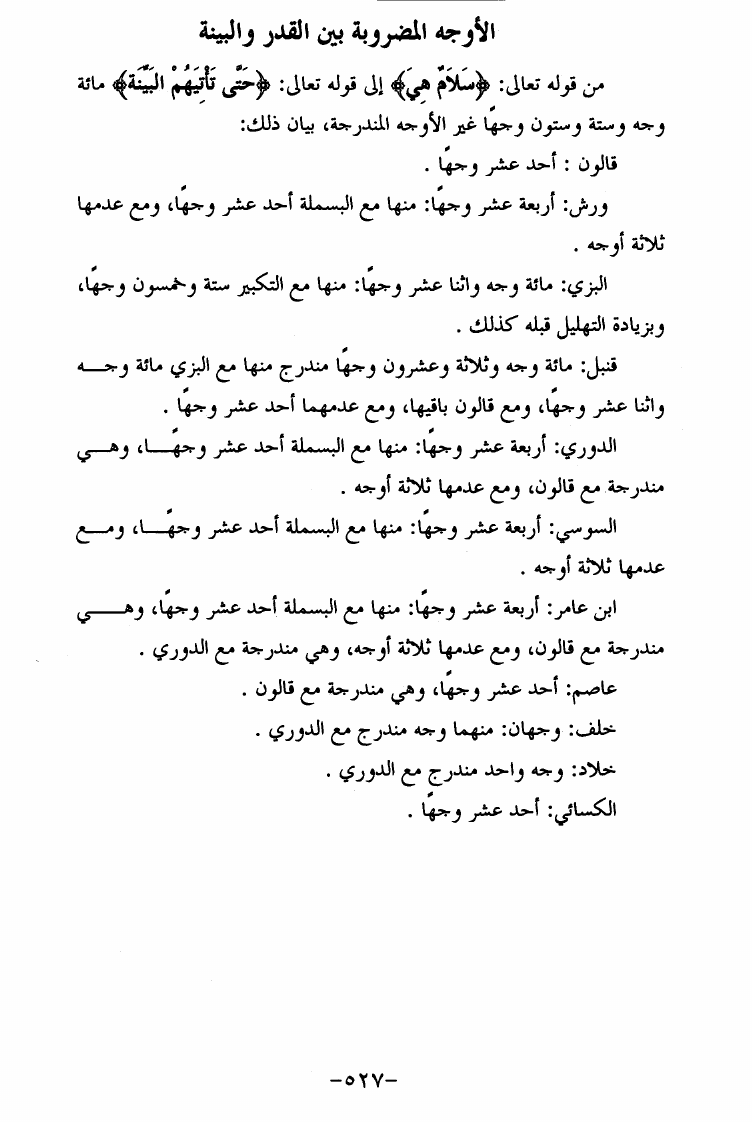 الأوجه المضروبة بين القدر والبينة
من قوله تعالى: ﴿سَلَامٌ هِيَ﴾ إلى قوله تعالى: ﴿حَتَّى تَأْتِيَهُمْ الْبَيِّنَة﴾ مائة
وجه وستة وستون وجهًا غير الأوجه المندرجة، بيان ذلك:
قالون : أحد عشر وجهًا .
ورش: أربعة عشر وجهًا: منها مع البسملة أحد عشر وجهًا، ومع عدمها
ثلاثة أوجه .
البزي: مائة وجه واثنا عشر وجهًا: منها مع التكبير ستة وخمسون وجهًا،
وبزيادة التهليل قبله كذلك .
قنبل: مائة وجه وثلاثة وعشرون وجهًا مندرج منها مع البزي مائة وجـــه
واثنا عشر وجهًا، ومع قالون باقيها، ومع عدمهما أحد عشر وجهًا .
الدوري: أربعة عشر وجهًا: منها مع البسملة أحد عشر وجهًـــا، وهـــي
مندرجة مع قالون، ومع عدمها ثلاثة أوجه .
السوسي: أربعة عشر وجهًا: منها مع البسملة أحد عشر وجهًـــا، ومـــع
عدمها ثلاثة أوجه .
ابن عامر: أربعة عشر وجهًا: منها مع البسملة أحد عشر وجهًا، وهـــي
مندرجة مع قالون، ومع عدمها ثلاثة أوجه، وهي مندرجة مع الدوري .
عاصم: أحد عشر وجهًا، وهي مندرجة مع قالون .
خلف: وجهان: منهما وجه مندرج مع الدوري .
خلاد: وجه واحد مندرج مع الدوري .
الكسائي: أحد عشر وجهًا .
-٥٢٧-